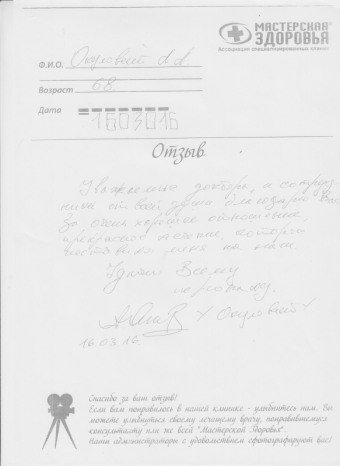 МАСТЕРСКАЯ
ЗДОРОВЬЯ
Ассоциация специализированных клиник
Ф.И.О.
Возраст 68
Дата 160316
Отзыв
Уважаемые доктора и сотруд-
ники от всей души благодарю Вас
За очень хорошее отношение,
прекрасное лечение, которое
меня на ноги
Удачи Всему
персоналу.
16.03.16
Спасибо за ваш отзыв!
Если вам понравилось в нашей клинике - улыбнитесь нам. Вы
можете улыбнуться своему лечащему врачу, понравившемуся
консультанту или же всей "Мастерской Здоровья".
Наши администраторы с удовольствием сфотографируют вас!